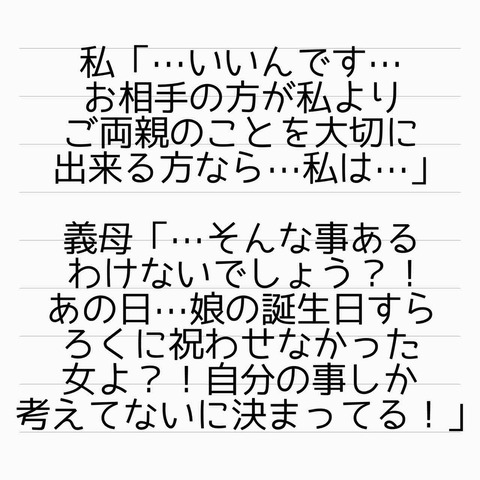 私「…いいんです…
お相手の方が私より
ご両親のことを大切に
出来る方なら…私は…」
義母「…そんな事ある
わけないでしょう？！
あの日…娘の誕生日すら
ろくに祝わせなかった
女よ？！自分の事しか
考えてないに決まってる！」